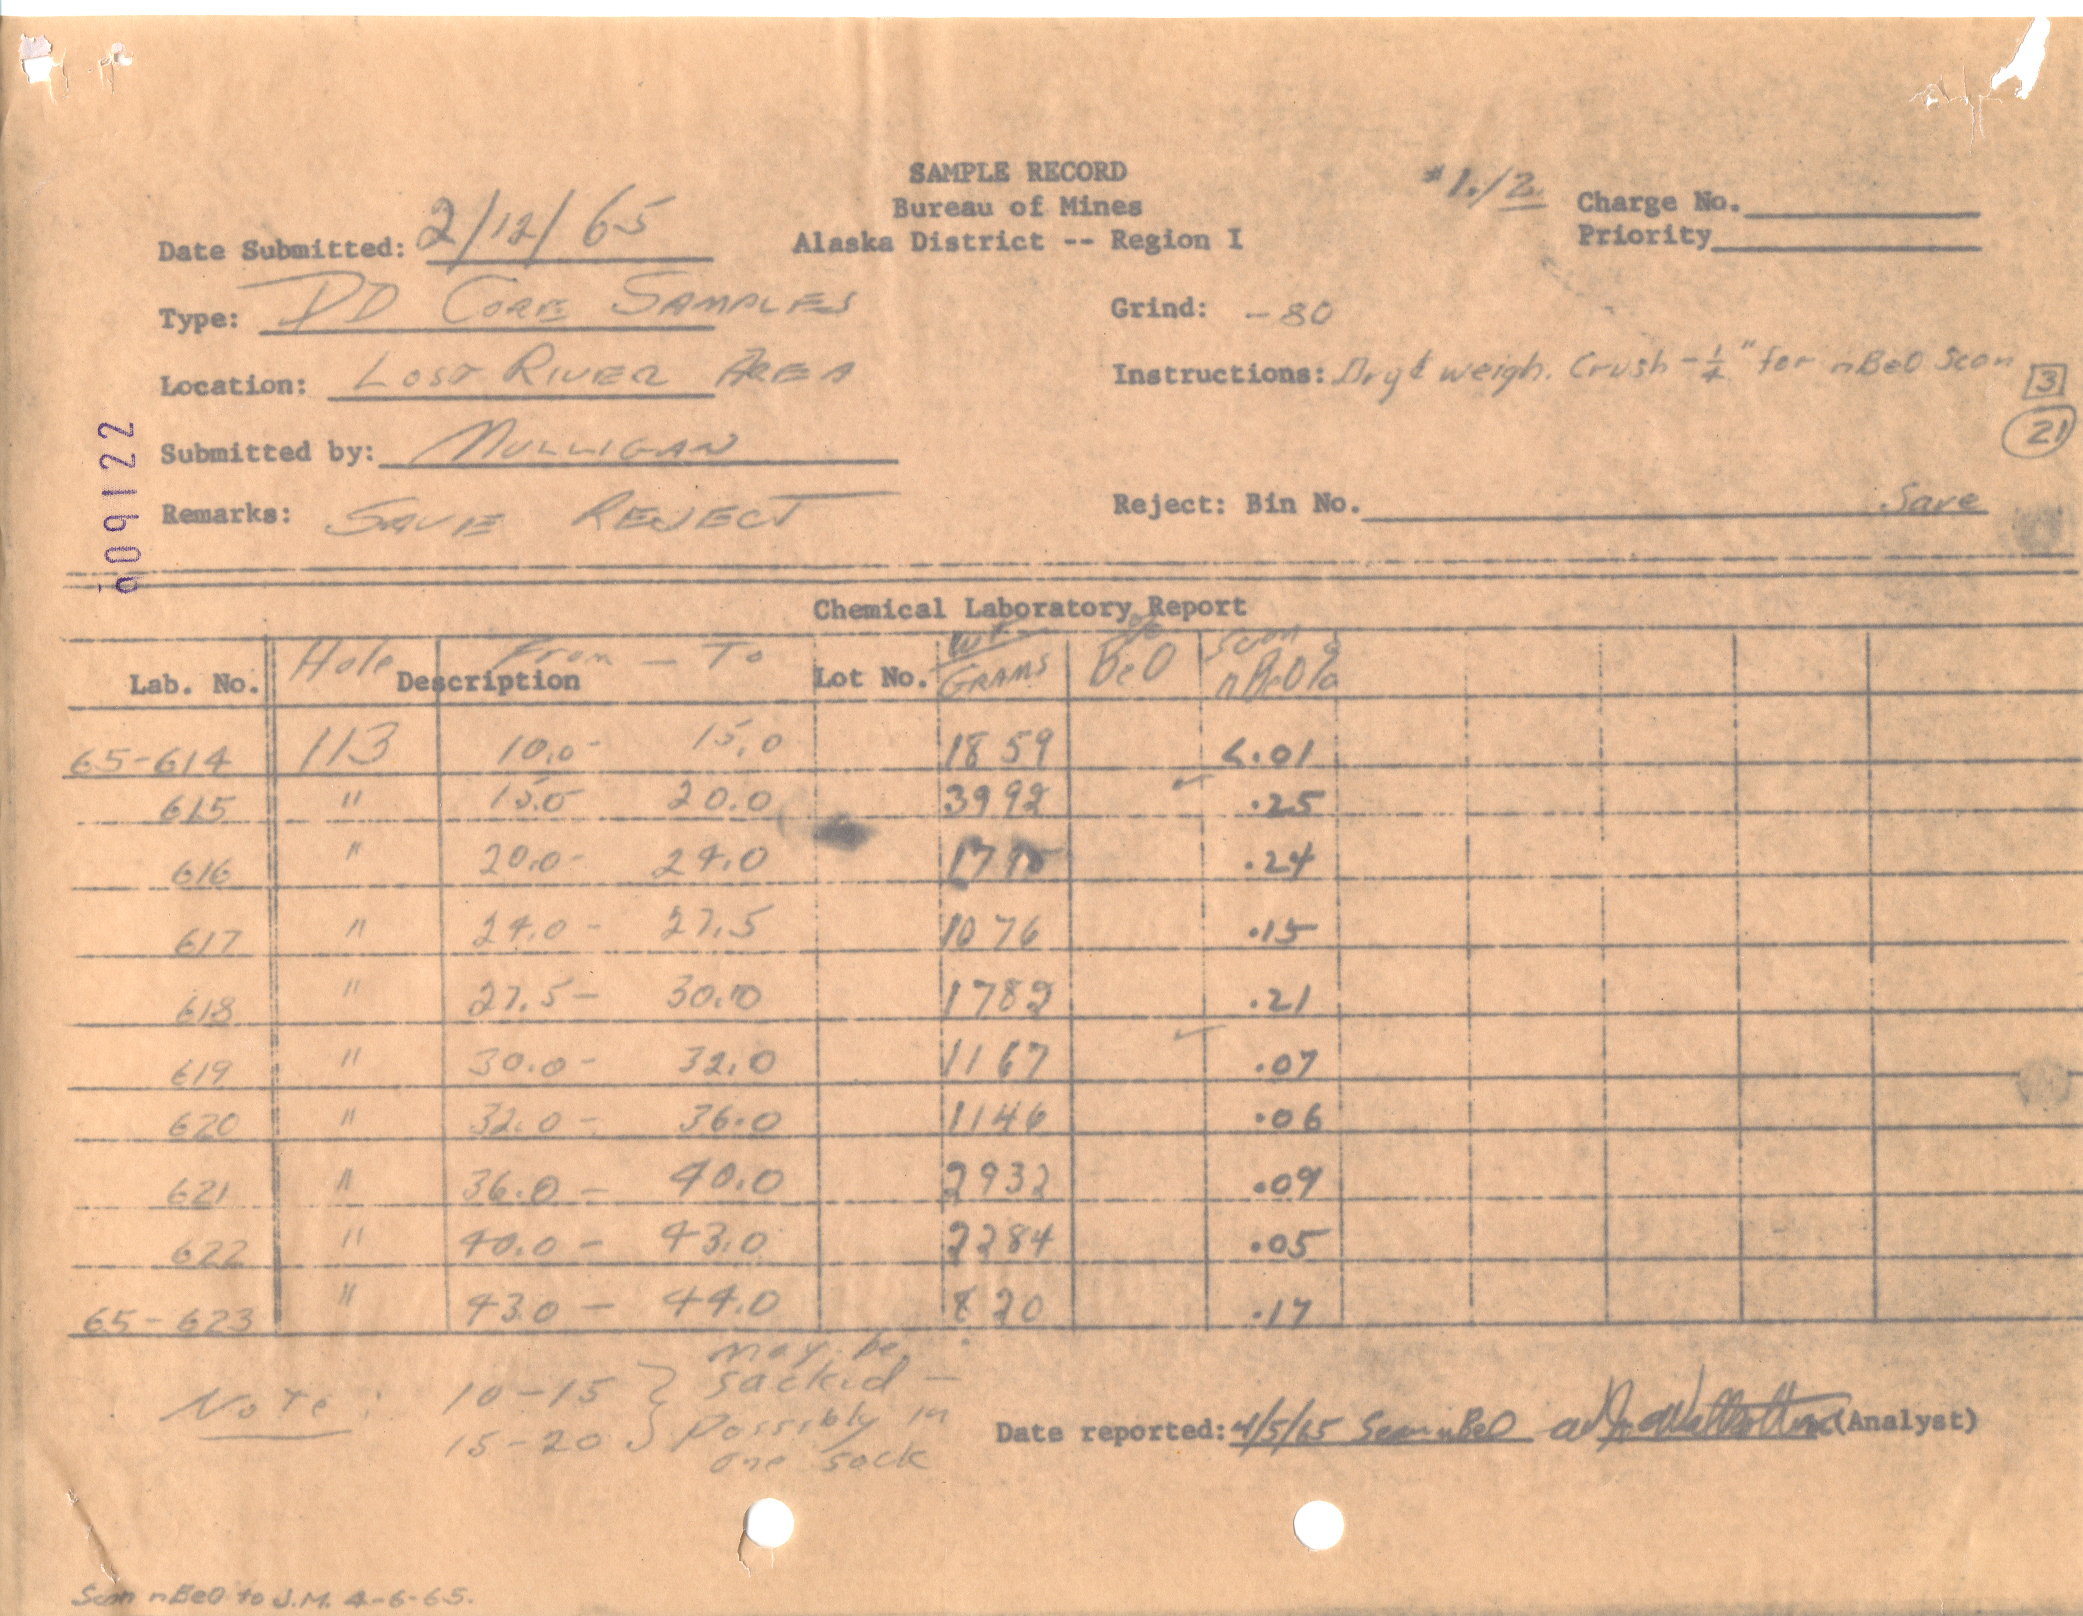 SAMPLE RECORD
#1./2
Bureau of Mines
Charge No.
Date Submitted: 2/12/65
Alaska District -- Region I
Priority
Type: DD CORE SAMPLES
Grind: -80
Location: LOST RIVER AREA
Instructions: Dry & weigh. Crush -1/4" for nBeO Scan
3
21
Submitted by: MULLIGAN
Remarks: SAVE REJECT
Reject: Bin No. Save
009122
Chemical Laboratory Report
Lab. No. Hole Description From - To Lot No. Wt GRAMS % BeO Scan nBeO %
65-614 113 10.0- 15.0 1859 <.01
615 " 15.0 20.0 3992 ✓ .25
616 " 20.0- 24.0 .24
617 " 24.0- 27.5 1076 .15
618 " 27.5- 30.0 1782 .21
619 " 30.0- 32.0 1167 ✓ .07
620 " 32.0- 36.0 1146 .06
621 " 36.0- 40.0 2932 .09
622 " 40.0- 43.0 2284 .05
65-623 " 43.0- 44.0 820 .17
Note: 10-15 } may be sacked -
15-20 } Possibly in one sack
Date reported: 4/5/65 Scan nBeO (Analyst)
Scan nBeO to J.M. 4-6-65.